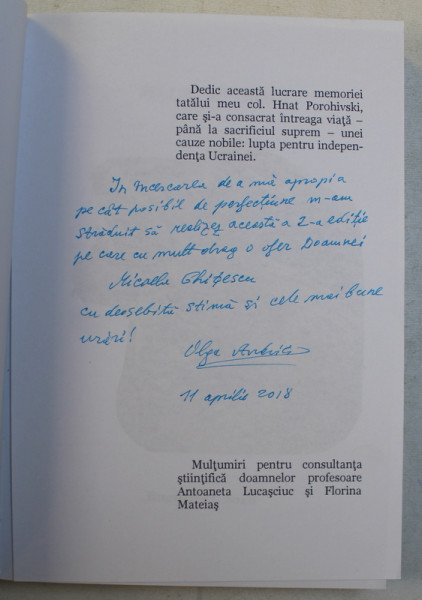 Dedic această lucrare memoriei
tatălui meu col. Hnat Porohivski,
care şi-a consacrat întreaga viaţă –
până la sacrificiul suprem – unei
cauze nobile: lupta pentru indepen-
denţa Ucrainei.
In încercarea de a mă apropia
pe cât posibil de perfecţiune m-am
străduit să realizez această a 2-a ediţie
pe care cu mult drag o ofer Doamnei
Micaela Ghiţescu
cu deosebită stimă şi cele mai bune
urări!
Olga
11 aprilie 2018
Mulţumiri pentru consultanţa
ştiinţifică doamnelor profesoare
Antoaneta Lucaşciuc şi Florina
Mateiaş